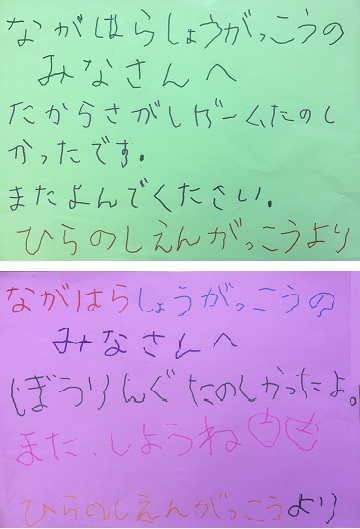 ながはらしょうがっこうの
みなさんへ
たからさがしげーむたのし
かったです。
またよんでください。
ひらのしえんがっこうより
ながはらしょうがっこうの
みなさんへ
ぼうりんぐたのしかったよ。
また、しようね
ひらのしえんがっこうより